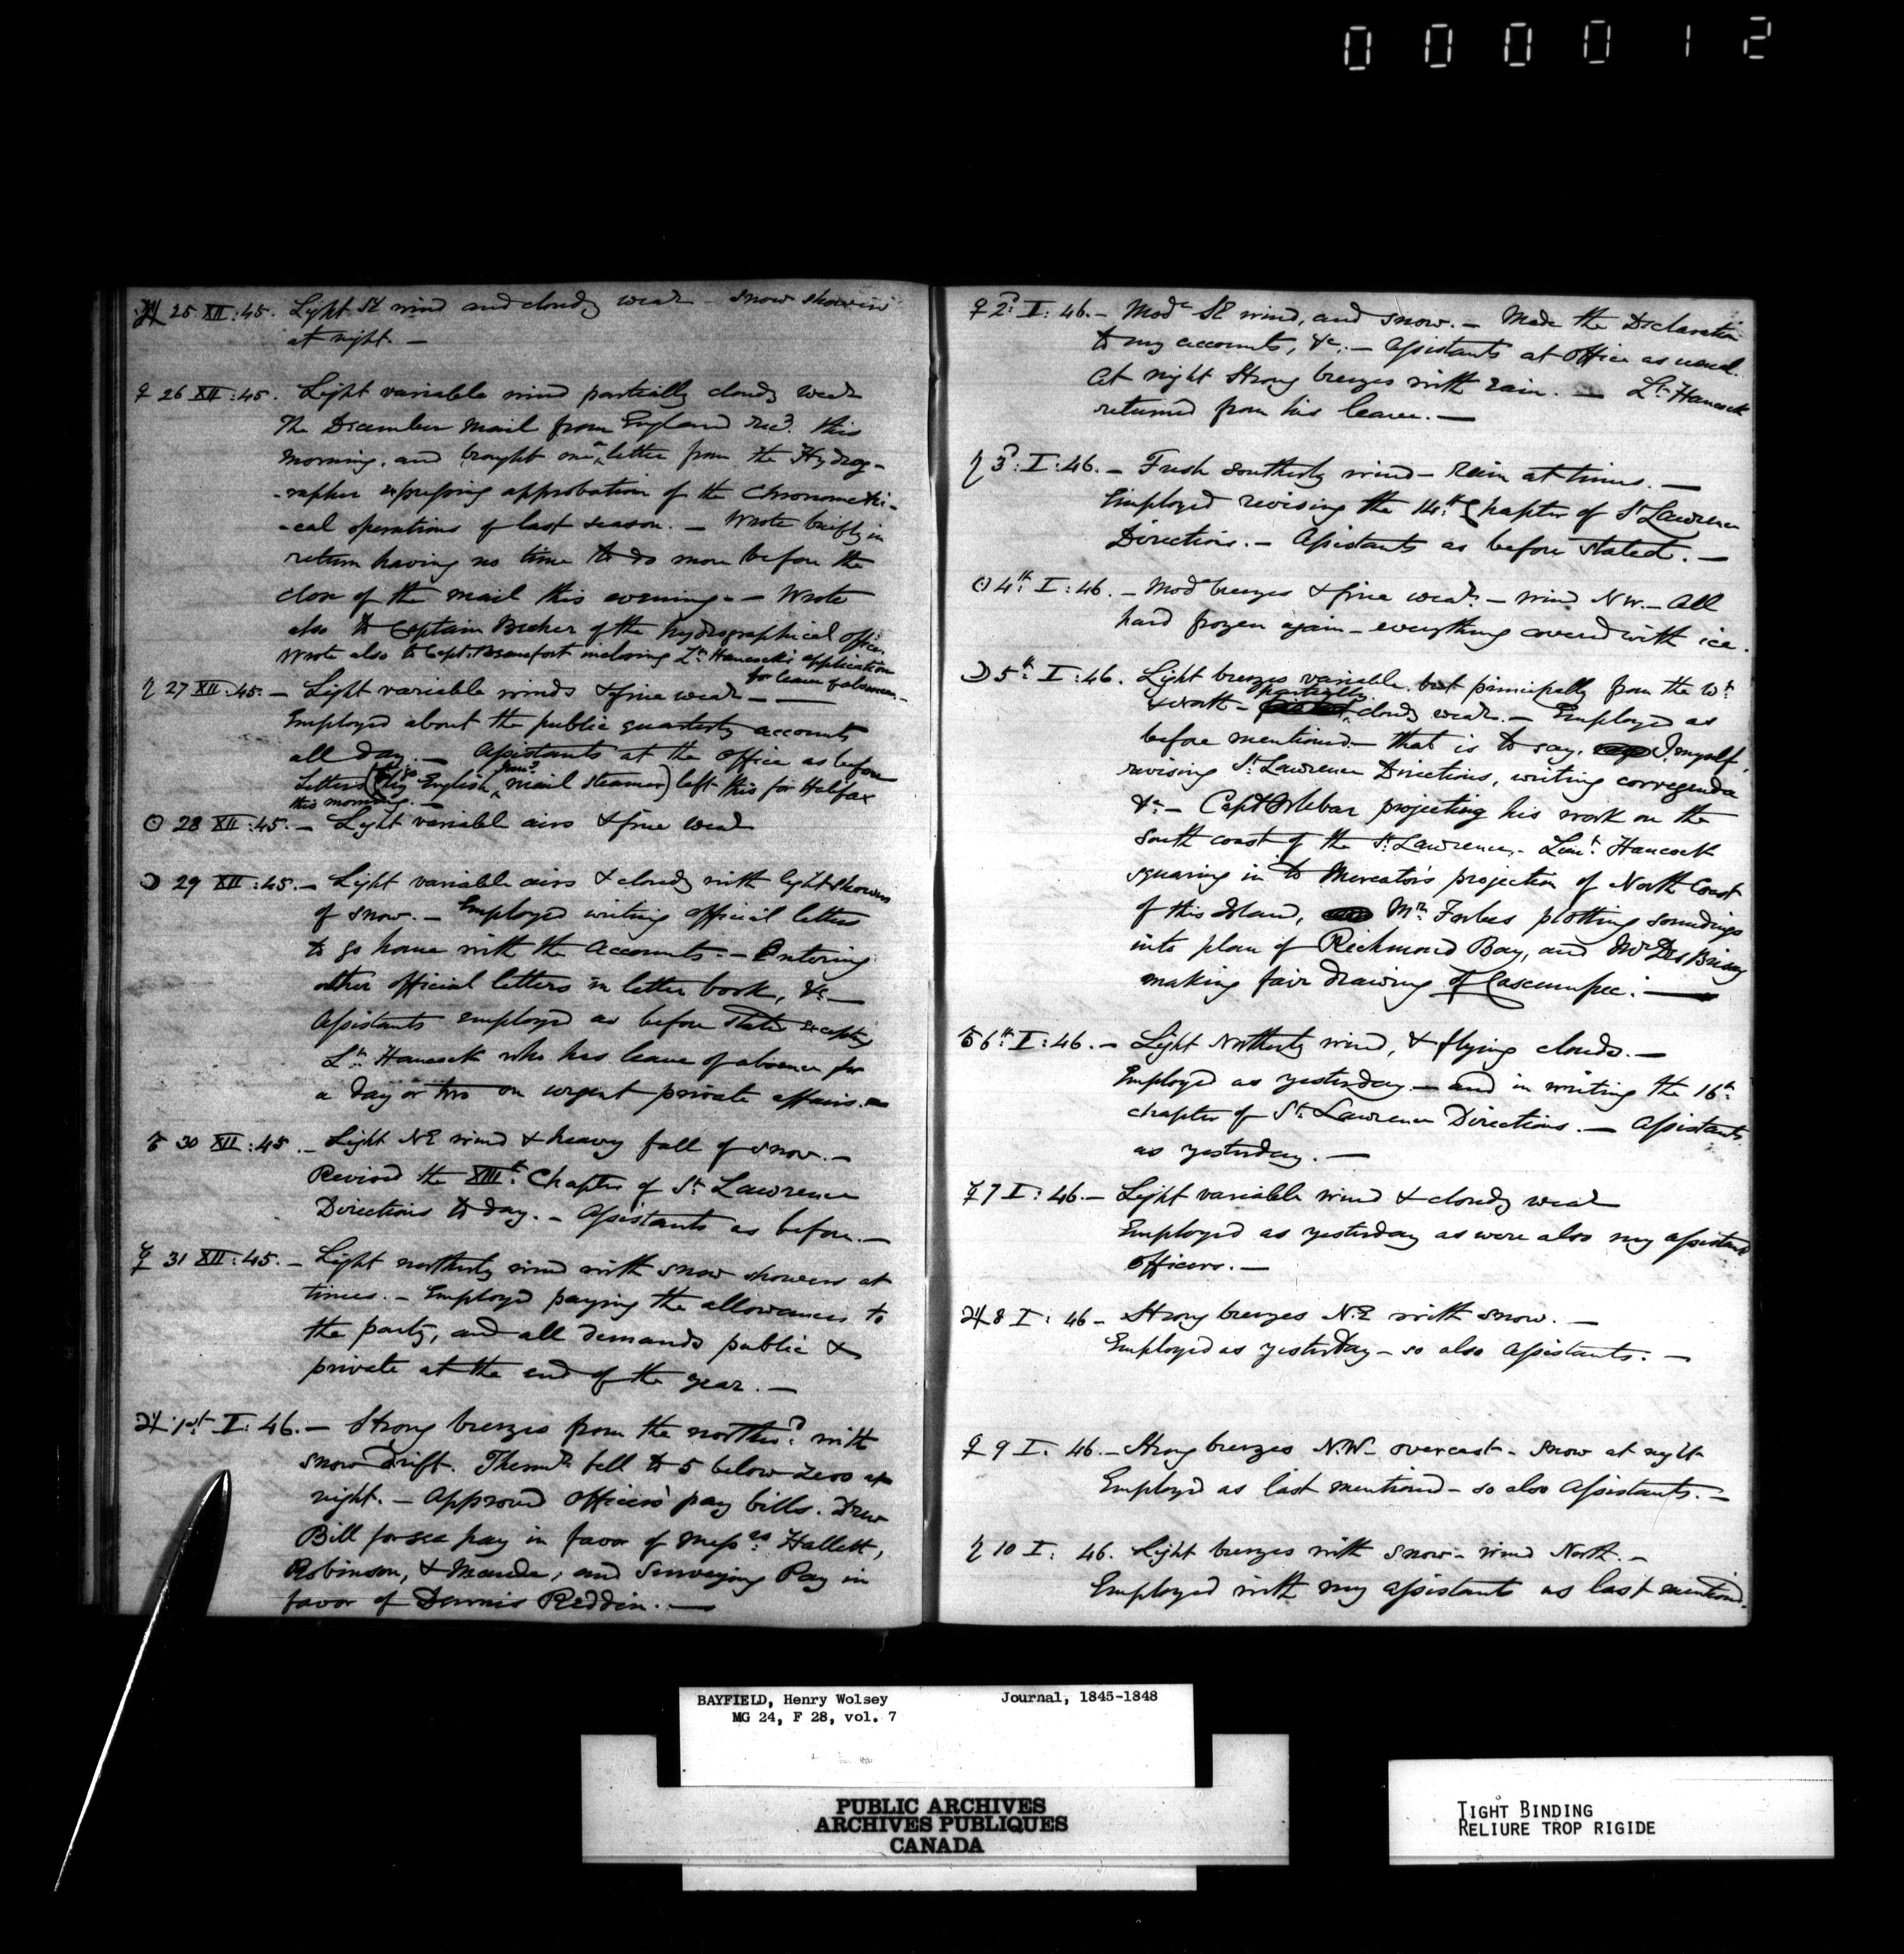 000012
♃ 25 XII:45. Light SE wind and cloudy weatr - snow showers
at night. —
♀ 26 XII:45. Light variable wind partially cloudy weatr
The December Mail from England recd. this
morning, and brought me a letter from the Hydrog-
-rapher expressing approbation of the Chronometri-
-cal operations of last season. — Wrote briefly in
return having no time to do more before the
close of the mail this evening. — Wrote
also to Captain Becher of the hydrographical office.
Wrote also to Capt. Beaufort inclosing Lt. Hancock's application
for leave of absence. —
♄ 27 XII:45. — Light variable winds & fine weatr — —
Employed about the public quarterly accounts
all day. — Assistants at the office as before
Letters (to go by English Janr. mail steamer) left this for Halifax
this morning. —
☉ 28 XII:45. — Light variable airs & fine weatr
☽ 29 XII:45. — Light variable airs & cloudy with light showers
of snow. — Employed writing official letters
to go home with the Accounts. — Entering
other official letters in letter book, &c. —
Assistants employed as before stated excepting
Lt. Hancock who has leave of absence for
a day or two on urgent private affairs. —
♂ 30 XII:45. — Light NE wind & heavy fall of snow. —
Revised the XIIIth. Chapter of St. Lawrence
Directions to day. — Assistants as before. —
☿ 31 XII:45. — Light northerly wind with snow showers at
times. — Employed paying the allowances to
the party, and all demands public &
private at the end of the year. —
♃ 1st I:46. — Strong breezes from the northwd. with
snow drift. Thermr. fell to 5 below zero at
night. — Approved officers' pay bills. Drew
Bill for sea pay in favor of Messrs. Hallett,
Robinson, & Maude, and Surveying Pay in
favor of Dennis Reddin. —
♀ 2d. I:46. — Modte SE wind, and snow. — Made the Declaration
to my accounts, &c. — Assistants at office as usual.
At night Strong breezes with rain. — Lt. Hancock
returned from his leave. —
♄ 3d. I:46. — Fresh southerly wind — Rain at times. —
Employed revising the 14th. Chapter of St. Lawrence
Directions. — Assistants as before stated. —
☉ 4th. I:46. — Modte breezes & fine weatr. — wind NW. — All
hard frozen again — everything covered with ice.
☽ 5th. I:46. Light breezes variable but principally from the Wt.
& North — partially cloudy weatr. — Employed as
before mentioned — that is to say, I myself,
revising St. Lawrence Directions, writing corregenda
&c. — Capt. Orlebar projecting his work on the
South coast of the St. Lawrence. — Lieut. Hancock
squaring in to Mercator's projection of North Coast
of this Island, Mr. Forbes plotting soundings
into plan of Richmond Bay, and Mr. Des Brisay
making fair drawing of Cascumpec. —
♂ 6th. I:46. — Light Northerly wind, & flying clouds. —
Employed as yesterday — and in writing the 16th.
chapter of St. Lawrence Directions. — Assistants
as yesterday. —
☿ 7 I:46. — Light variable wind & cloudy weatr
Employed as yesterday as were also my assistant
officers. —
♃ 8 I:46 — Strong breezes N.E with snow. —
Employed as yesterday — so also Assistants. —
♀ 9 I:46. — Strong breezes N.W. overcast — snow at night
Employed as last mentioned — so also Assistants. —
♄ 10 I:46. Light breezes with snow — wind North. —
Employed with my assistants as last mentiond.
BAYFIELD, Henry Wolsey Journal, 1845-1848
MG 24, F 28, vol. 7
PUBLIC ARCHIVES
ARCHIVES PUBLIQUES
CANADA
TIGHT BINDING
RELIURE TROP RIGIDE